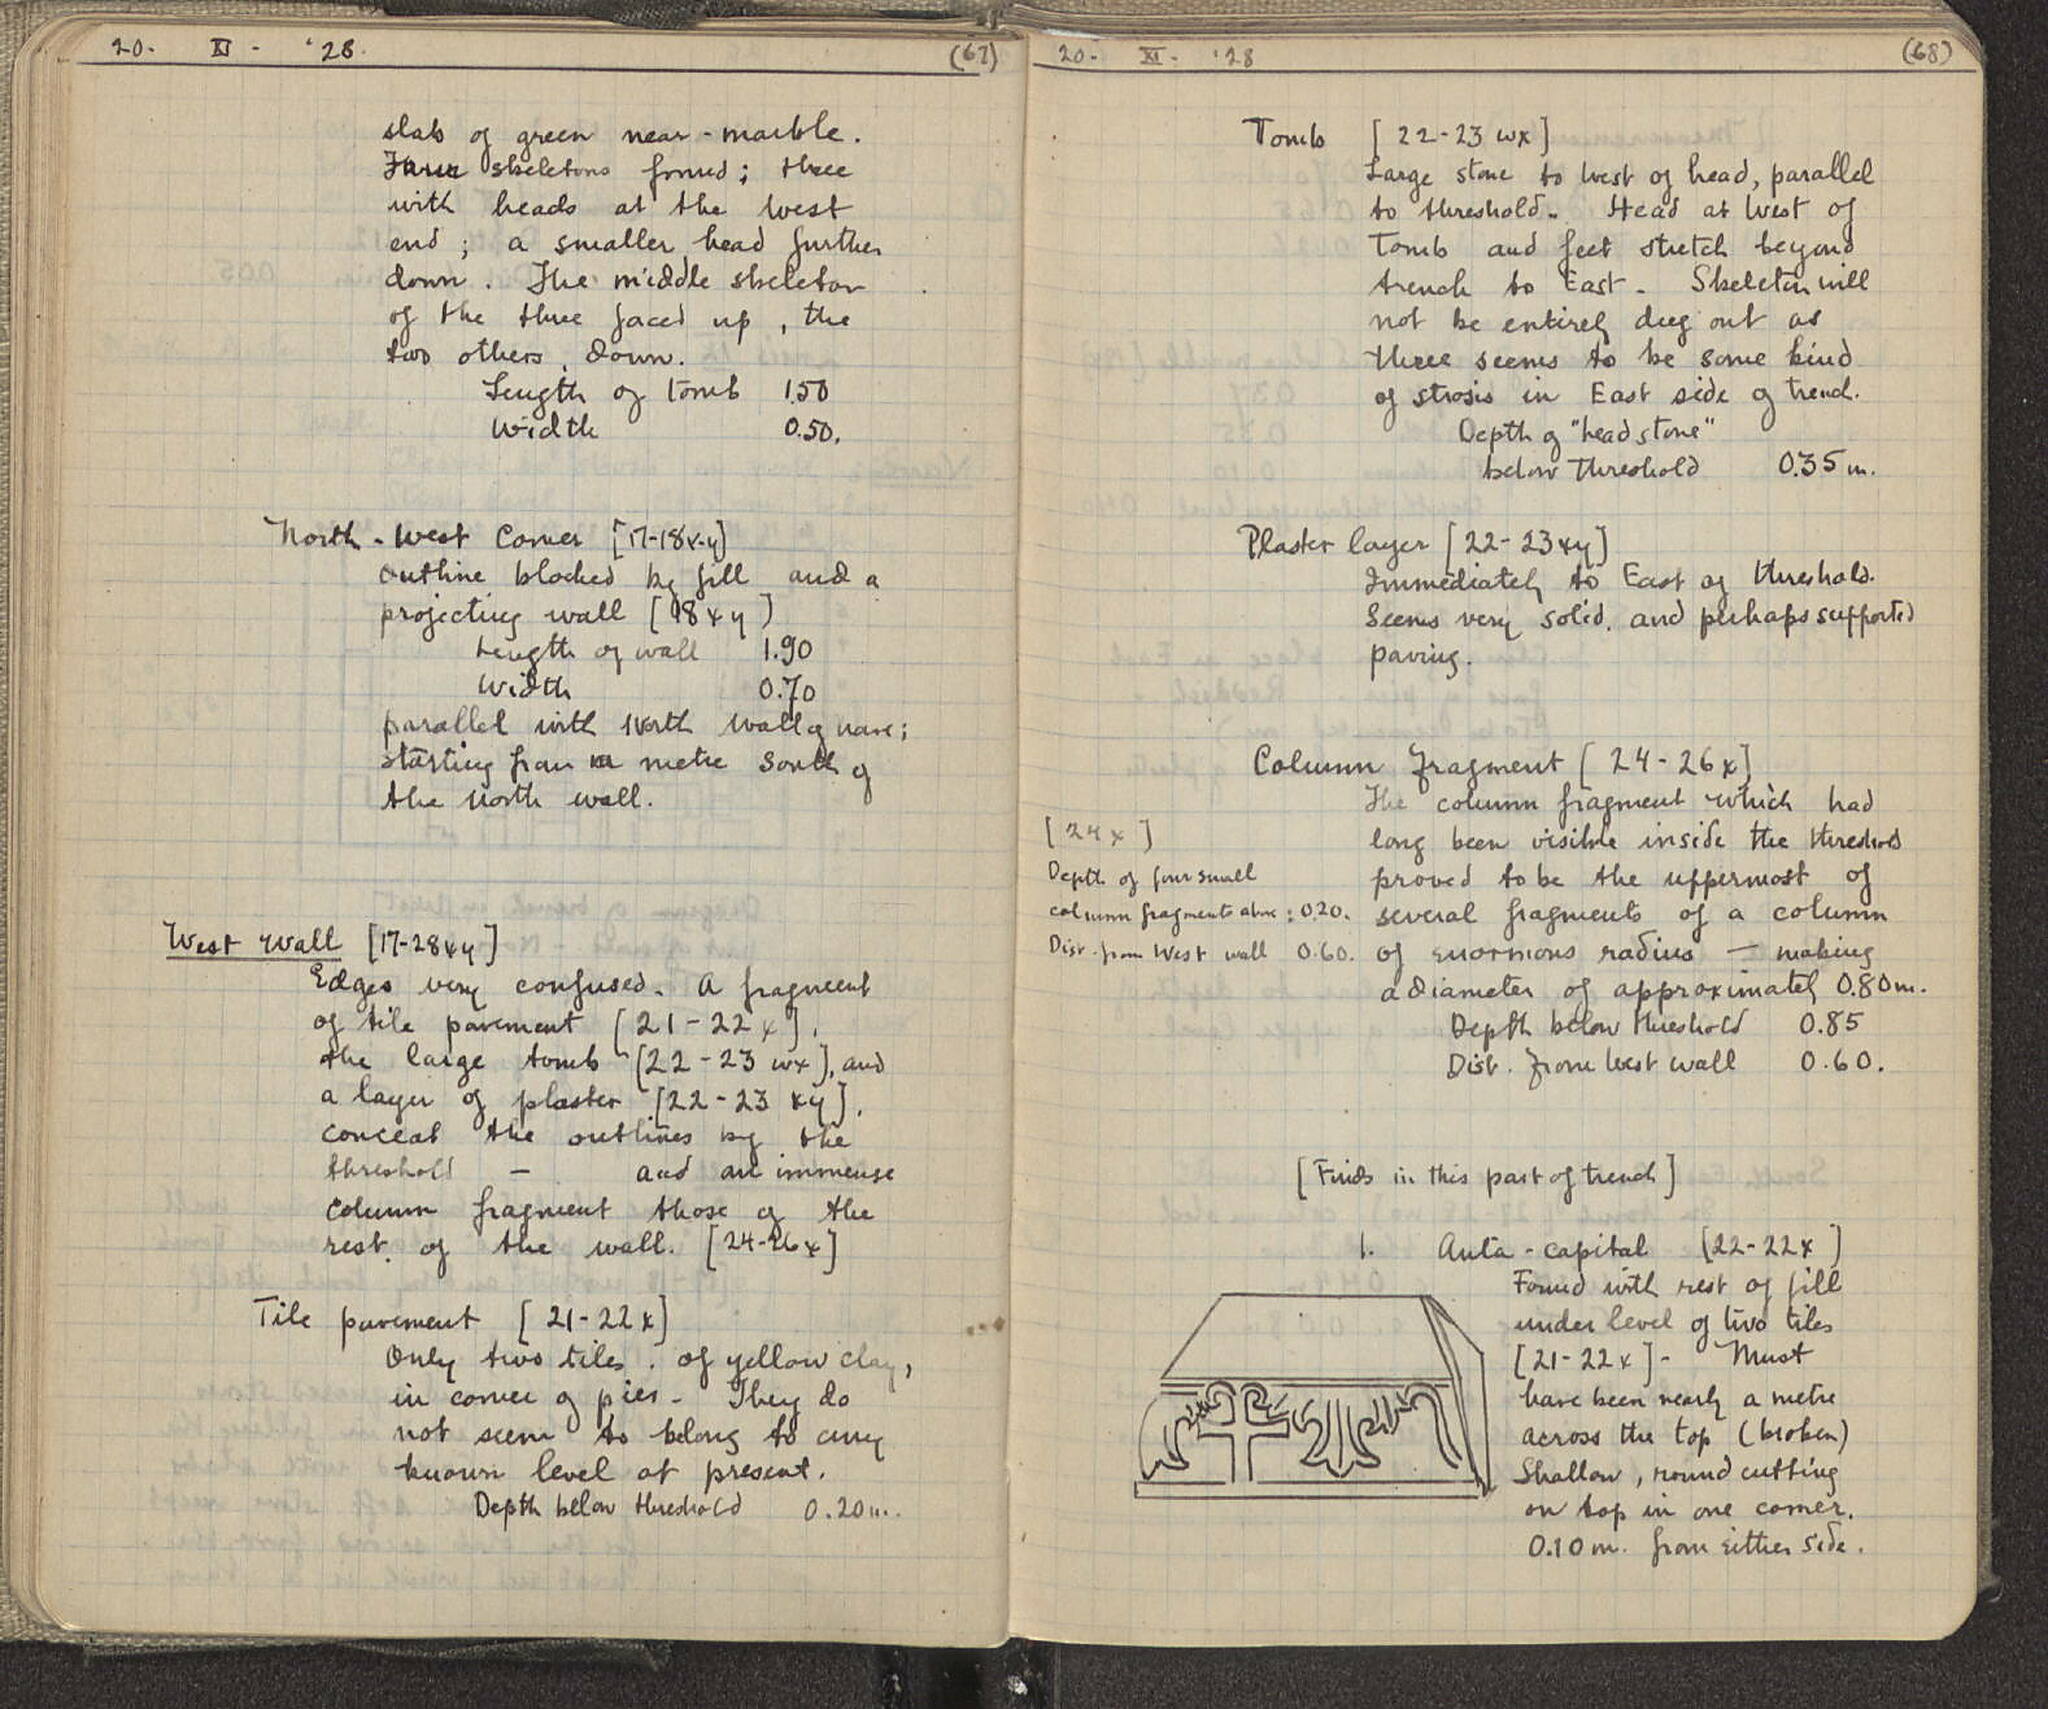 20. XI - '28. (67)
slab of green near-marble.
Four skeletons found; three
with heads at the West
end; a smaller head further
down. The middle skeleton
of the three faced up, the
two others, down.
Length of Tomb 1.50
Width 0.50.
North-West Corner [17-18x-y]
Outline blocked by fill and a
projecting wall [18xy]
Length of wall 1.90
Width 0.70
parallel with North Wall of nave;
starting from a metre South of
the North wall.
West Wall [17-28xy]
Edges very confused. A fragment
of tile pavement [21-22x],
the large tomb [22-23 wx], and
a layer of plaster [22-23 xy],
conceal the outlines by the
threshold — and an immense
column fragment those of the
rest of the wall. [24-26x]
Tile pavement [21-22x]
Only two tiles. of yellow clay,
in corner of pier - They do
not seem to belong to any
known level at present.
Depth below threshold 0.20 m.
20- XI- '28 (68)
Tomb [22-23 wx]
Large stone to West of head, parallel
to threshold. Head at West of
Tomb and feet stretch beyond
trench to East - Skeleton will
not be entirely dug out as
there seems to be some kind
of strosis in East side of trench.
Depth of "head stone"
below threshold 0.35 m.
Plaster layer [22-23xy]
Immediately to East of threshold.
Seems very solid, and perhaps supported
paving.
Column Fragment [24-26x]
The column fragment which had
long been visible inside the threshold
proved to be the uppermost of
several fragments of a column
of enormous radius — making
a diameter of approximately 0.80 m.
Depth below threshold 0.85
Dist. from West wall 0.60.
[24x]
Depth of four small
column fragments above: 0.20.
Dist. from West wall 0.60.
[Finds in this part of trench]
1. Anta-capital [22-22x]
Found with rest of fill
under level of two tiles
[21-22x]- Must
have been nearly a metre
across the top (broken)
Shallow, round cutting
on top in one corner.
0.10 m. from either side.